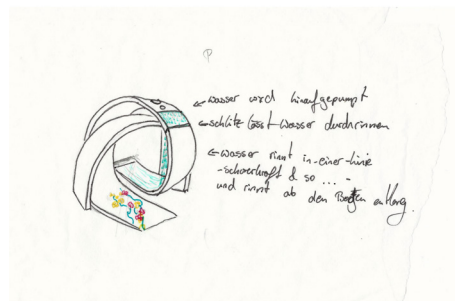 wasser wird hinaufgepumpt
schlitz lässt wasser durchrinnen
wasser rinnt in-einer-linie
-schwerkraft & so ... -
und rinnt ab den entlang.